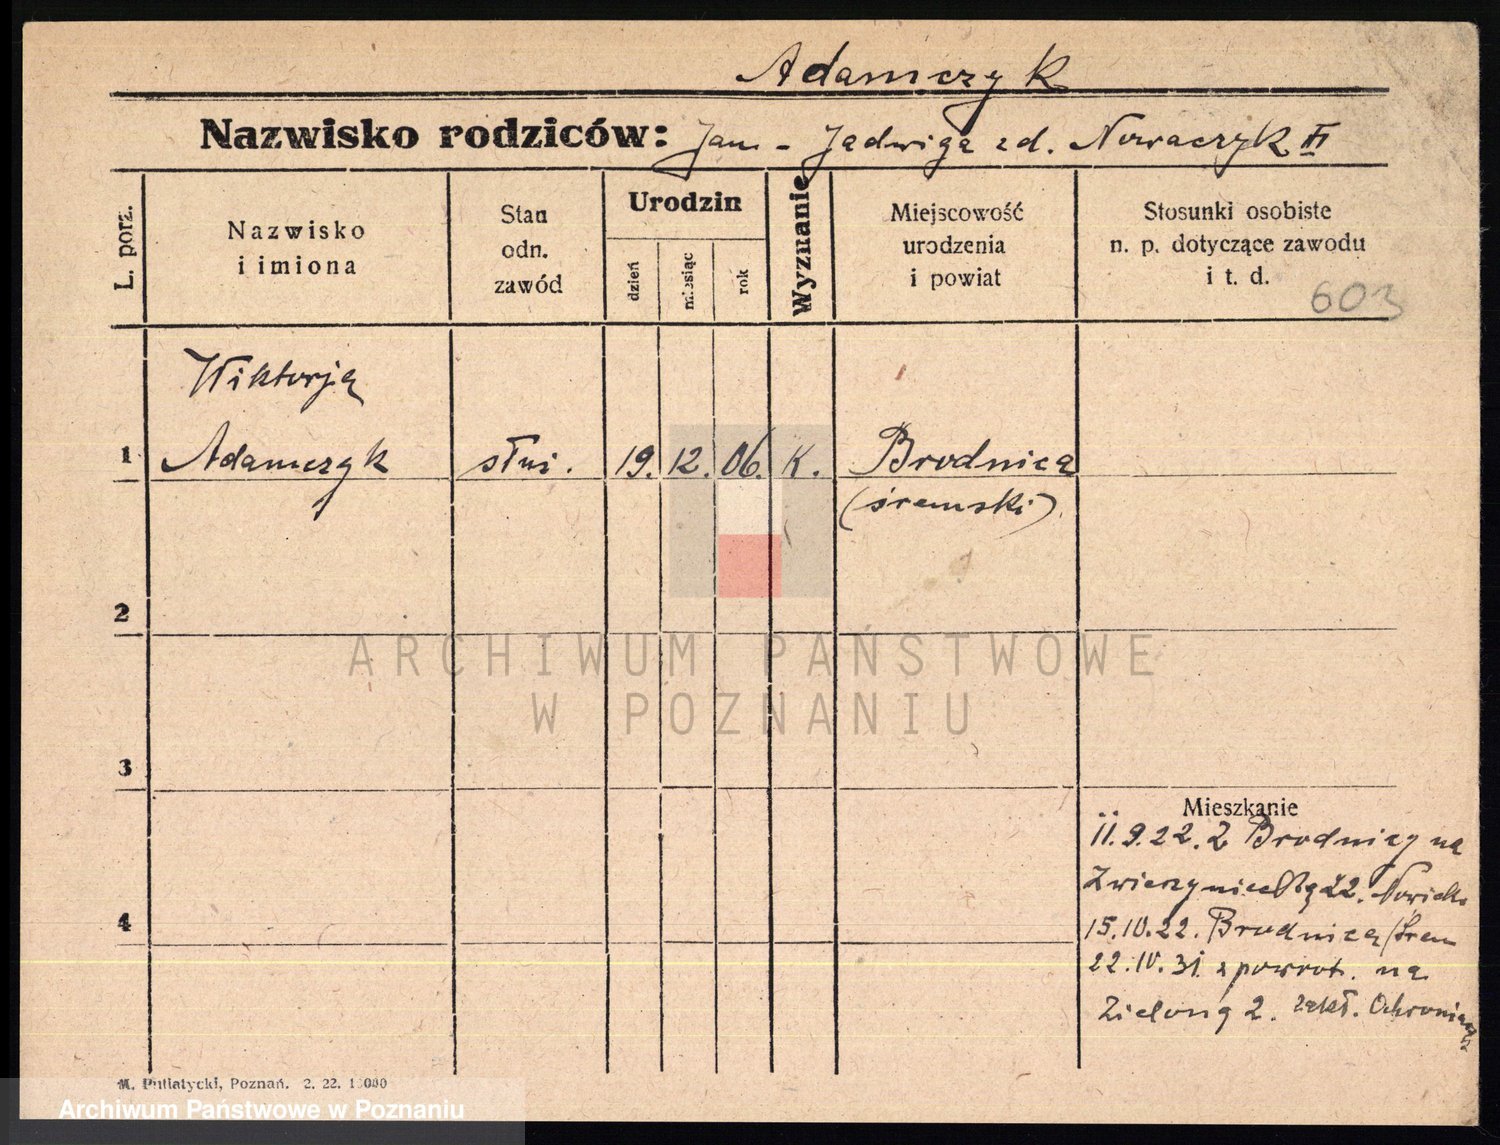 Adamczyk
Nazwisko rodziców: Jan - Jadwiga zd. Nowaczyk II
L. porz.
Nazwisko
i imiona
Stan
odn.
zawód
Urodzin
dzień
miesiąc
rok
Wyznanie
Miejscowość
urodzenia
i powiat
Stosunki osobiste
n. p. dotyczące zawodu
i t. d.
603
Wiktorja
1 Adamczyk służ. 19. 12. 06. K. Brodnica
(śremski)
2
ARCHIWUM PAŃSTWOWE
W POZNANIU
3
Mieszkanie
11.9.22. Z Brodnicy na
Zwierzyniecką 22.
4
15.10.22. Brodnica/Śrem
22.10.31. z powrot. na
Zieloną 2. zakł.
M. Putiatycki, Poznań. 2. 22. 10000
Archiwum Państwowe w Poznaniu